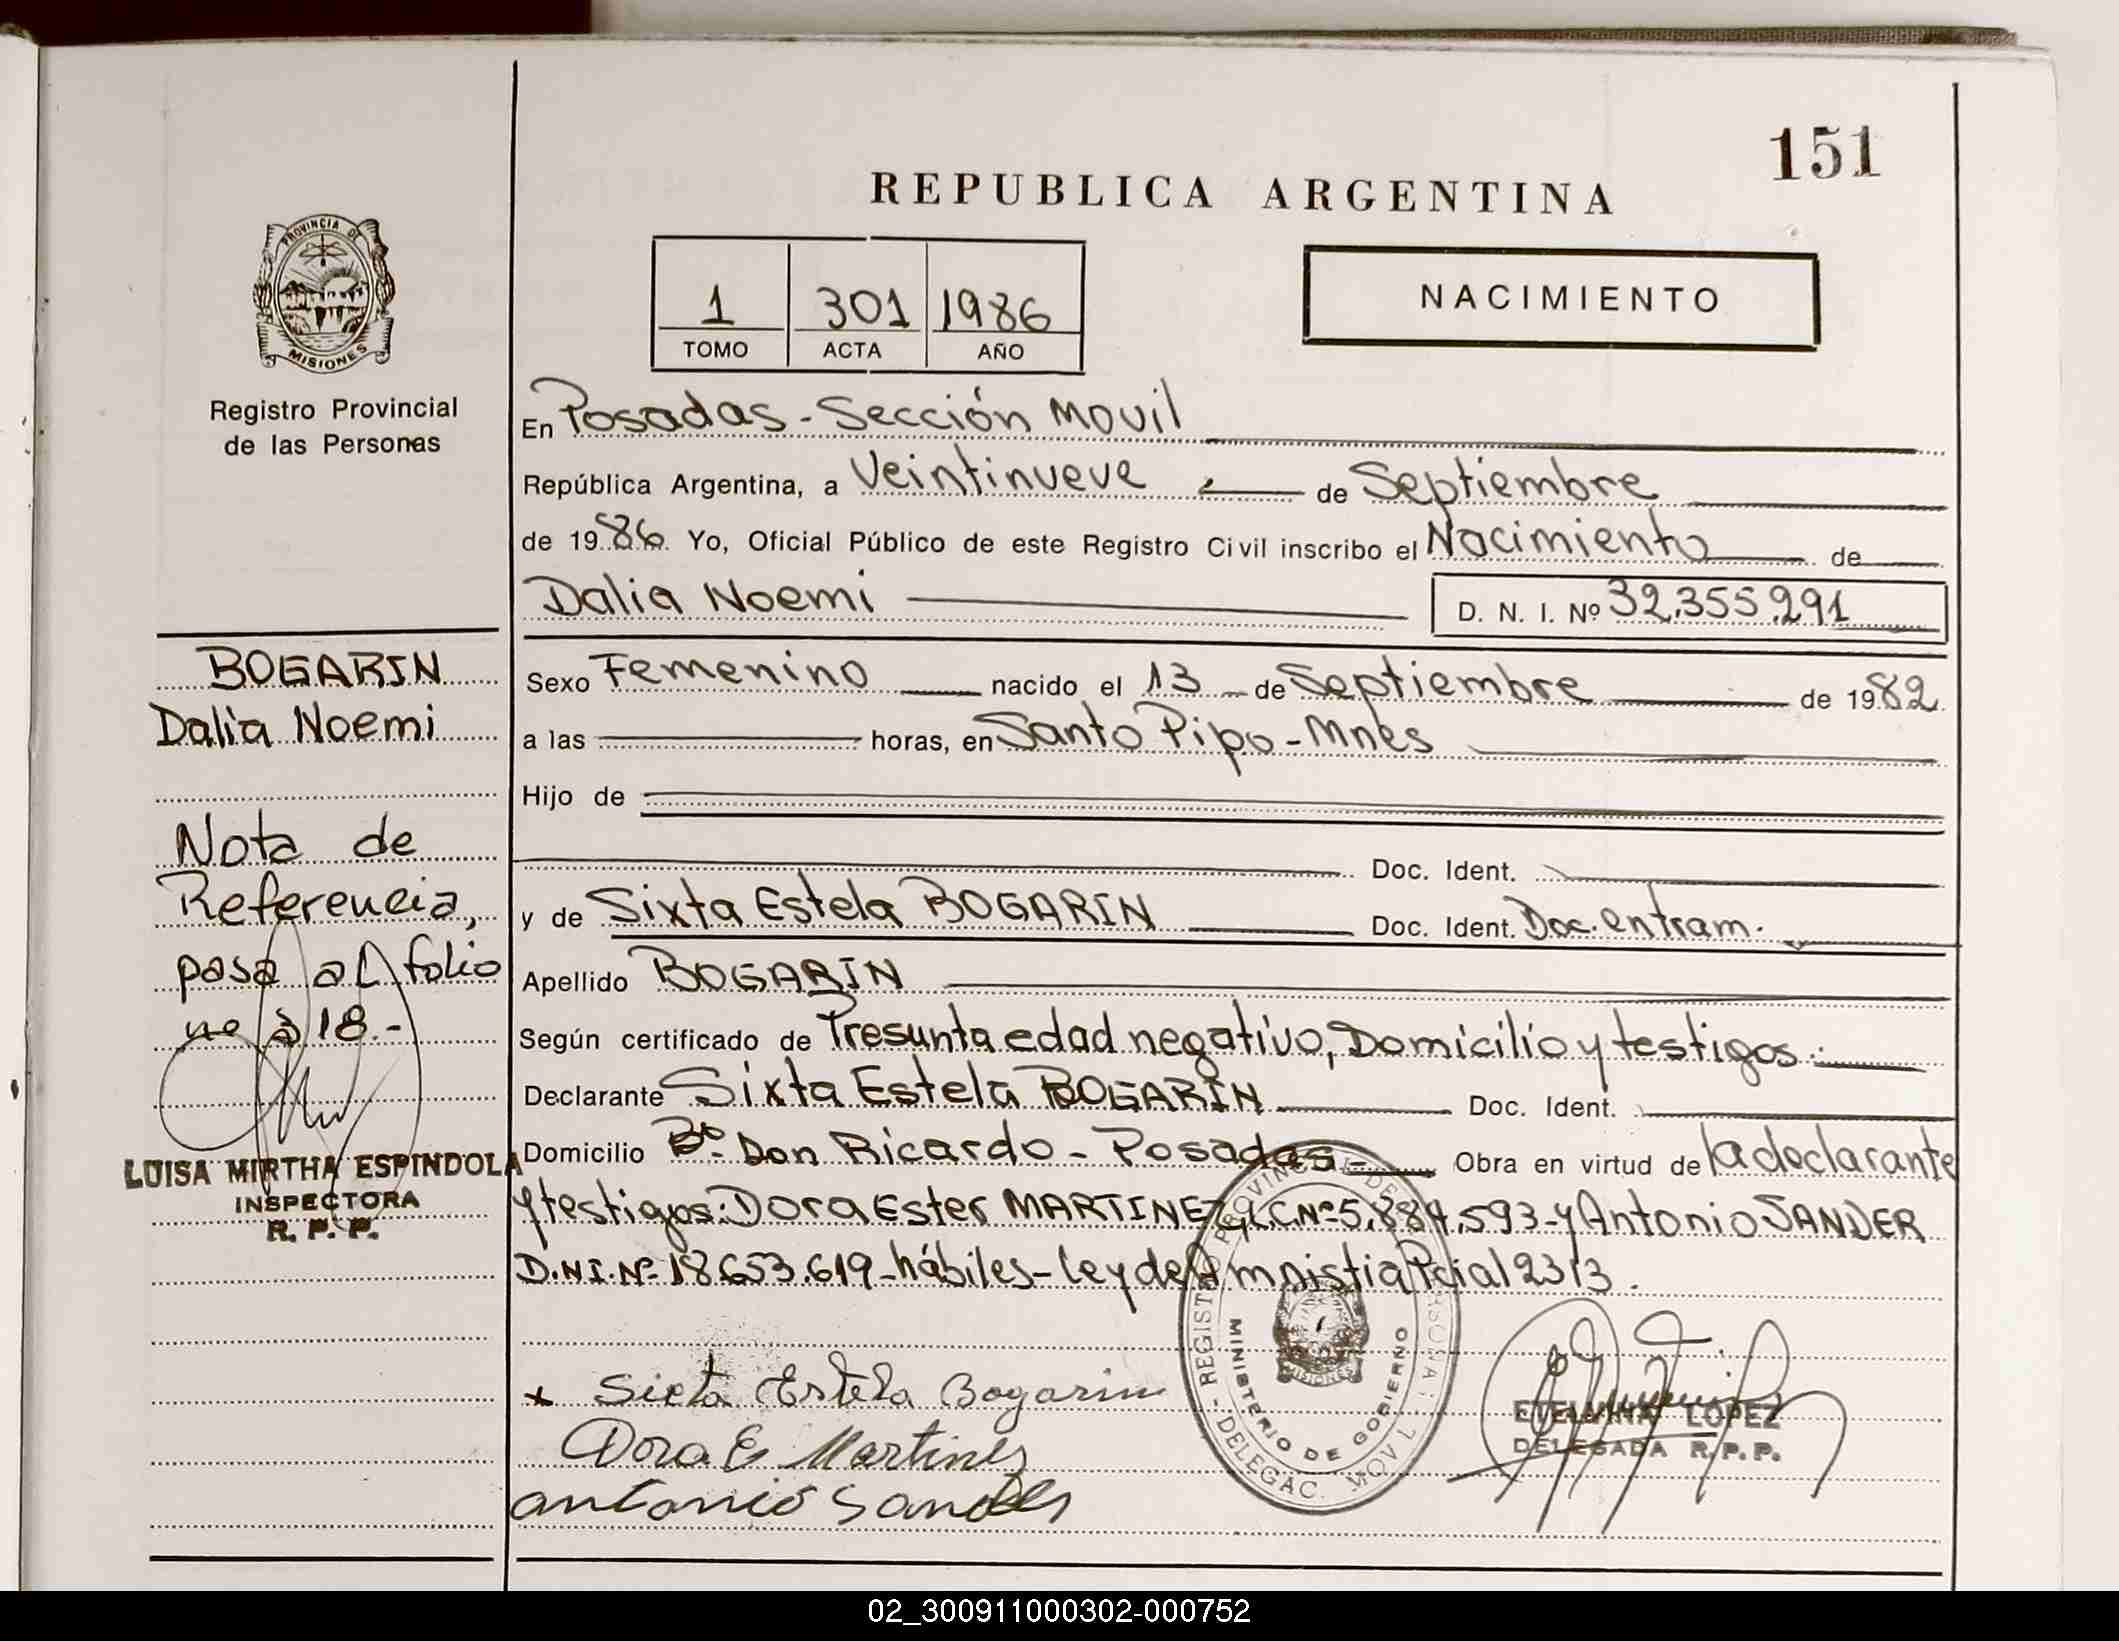 151
REPUBLICA ARGENTINA
PROVINCIA DE
MISIONES
Registro Provincial
de las Personas
1 301 1986
TOMO ACTA AÑO
NACIMIENTO
En Posadas - Sección Movil
República Argentina, a Veintinueve de Septiembre
de 1986. Yo, Oficial Público de este Registro Civil inscribo el Nacimiento de
Dalia Noemi D. N. I. Nº 32.355.291
BOGARIN
Dalia Noemi
Nota de
Referencia,
pasa al folio
nº 218.-
LUISA MIRTHA ESPINDOLA
INSPECTORA
R. P. P.
Sexo Femenino nacido el 13 de Septiembre de 1982
a las horas, en Santo Pipo - Mnes
Hijo de
Doc. Ident.
y de Sixta Estela BOGARIN Doc. Ident. Doc. en tram.
Apellido BOGARIN
Según certificado de Presunta edad negativo, Domicilio y testigos.
Declarante Sixta Estela BOGARIN Doc. Ident.
Domicilio Bº Don Ricardo - Posadas - Obra en virtud de la declarante
y testigos: Dora Ester MARTINEZ L.C. Nº 5.884.593 - y Antonio SANDER
D.N.I. Nº 18.653.619 - hábiles - ley de Amnistia Pcial 2313.
x Sixta Estela Bogarin
Dora E Martinez
antonio Sander
MINISTERIO DE GOBIERNO
MISIONES
ETELVINA LOPEZ
DELEGADA R.P.P.
02_300911000302-000752